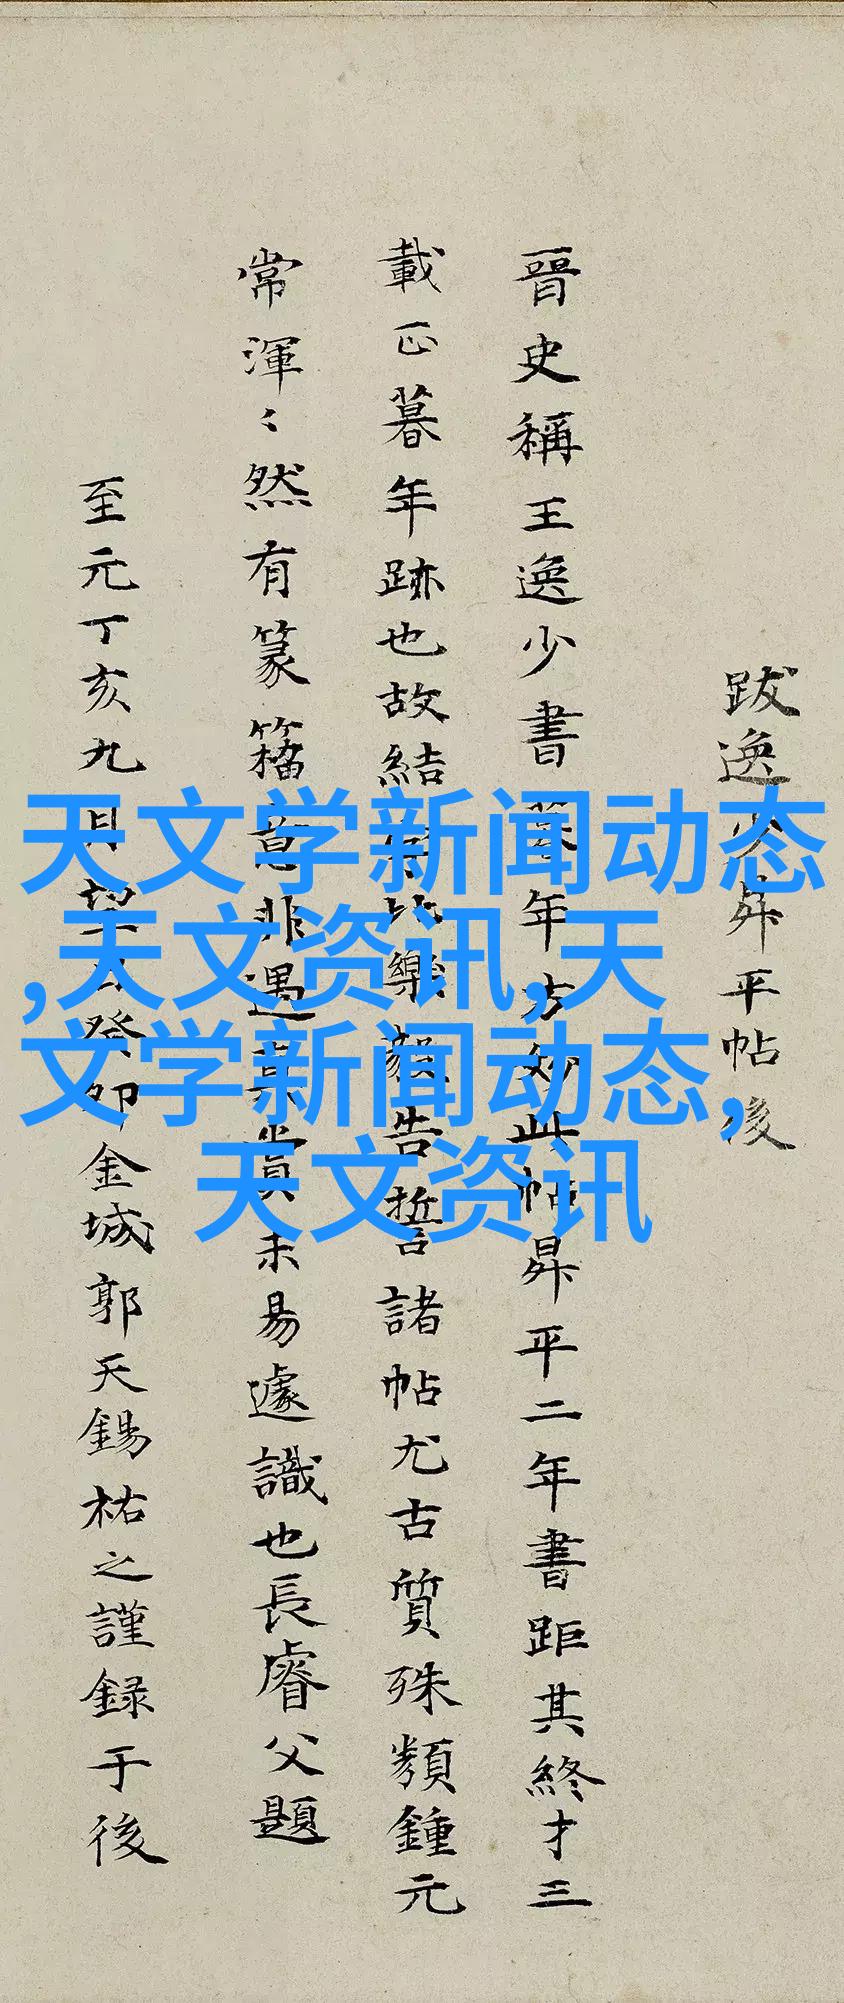 跋逸少昇平帖後
晉史稱王逸少書暮年方妙此帖昇平二年書距其終才三
載正暮年跡也故結字比樂毅告誓諸帖尤古質殊類鍾元
常渾〻然有篆籀意非遇真賞未易遽識也長睿父題
至元丁亥九月望日癸卯金城郭天錫祐之謹録于後
天文学新闻动态
,天文资讯,天
文学新闻动态,
天文资讯